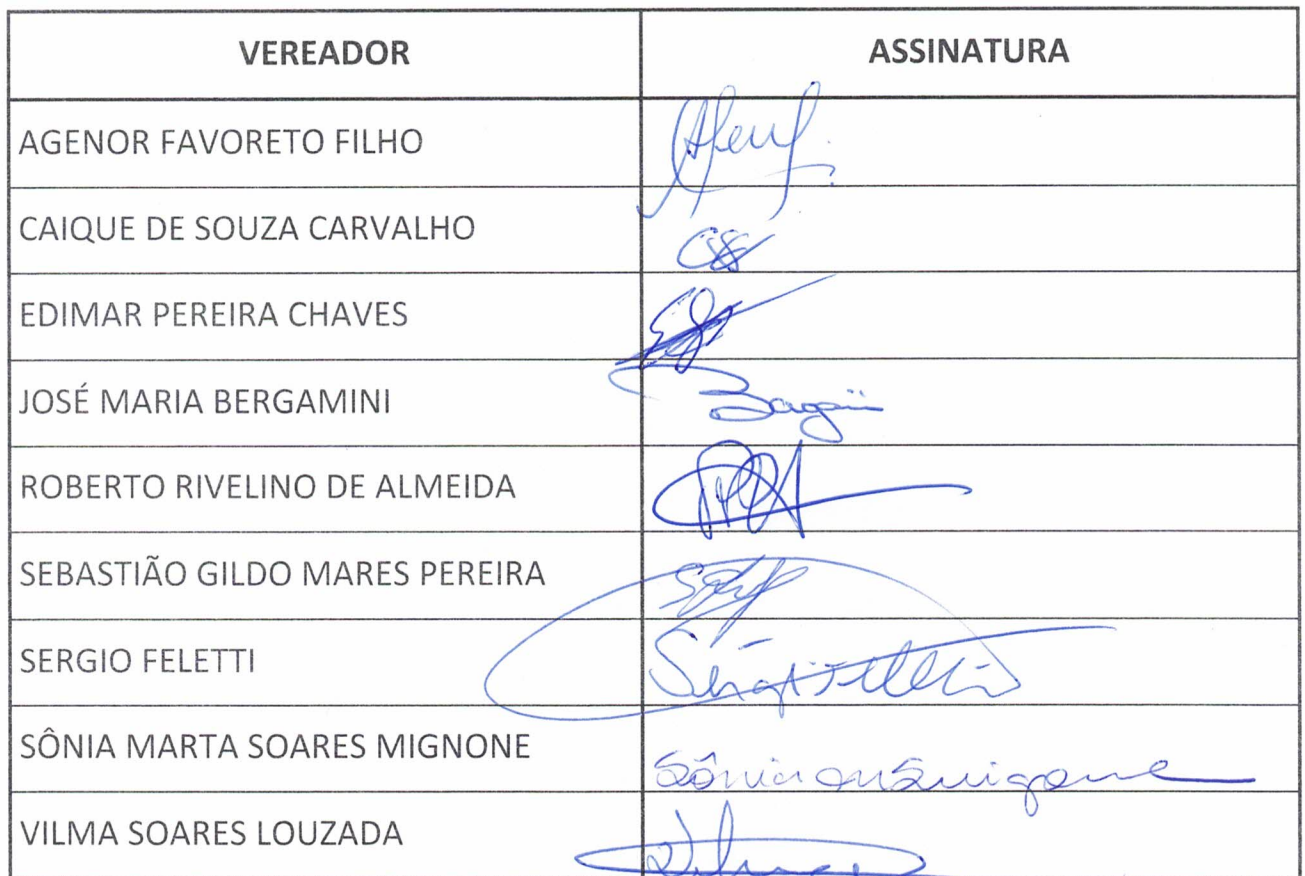 VEREADOR ASSINATURA
AGENOR FAVORETO FILHO
CAIQUE DE SOUZA CARVALHO
EDIMAR PEREIRA CHAVES
JOSÉ MARIA BERGAMINI
ROBERTO RIVELINO DE ALMEIDA
SEBASTIÃO GILDO MARES PEREIRA
SERGIO FELETTI
SÔNIA MARTA SOARES MIGNONE Sônia
VILMA SOARES LOUZADA